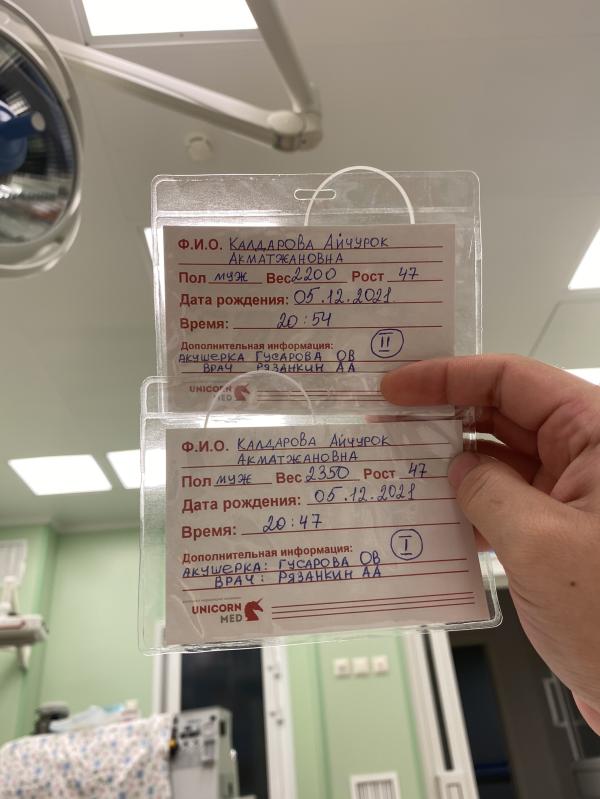 Ф.И.О. КАЛДАРОВА АЙЧУРОК
АКМАТЖАНОВНА
Пол муж Вес 2200 Рост 47
Дата рождения: 05.12.2021
Время: 20:54
Дополнительная информация: II
АКУШЕРКА ГУСАРОВА ОВ
ВРАЧ РЯЗАНКИН АА
UNICORN
MED
Ф.И.О. КАЛДАРОВА АЙЧУРОК
АКМАТЖАНОВНА
Пол муж Вес 2350 Рост 47
Дата рождения: 05.12.2021
Время: 20:47
Дополнительная информация: I
АКУШЕРКА: ГУСАРОВА ОВ
ВРАЧ: РЯЗАНКИН АА
UNICORN
MED